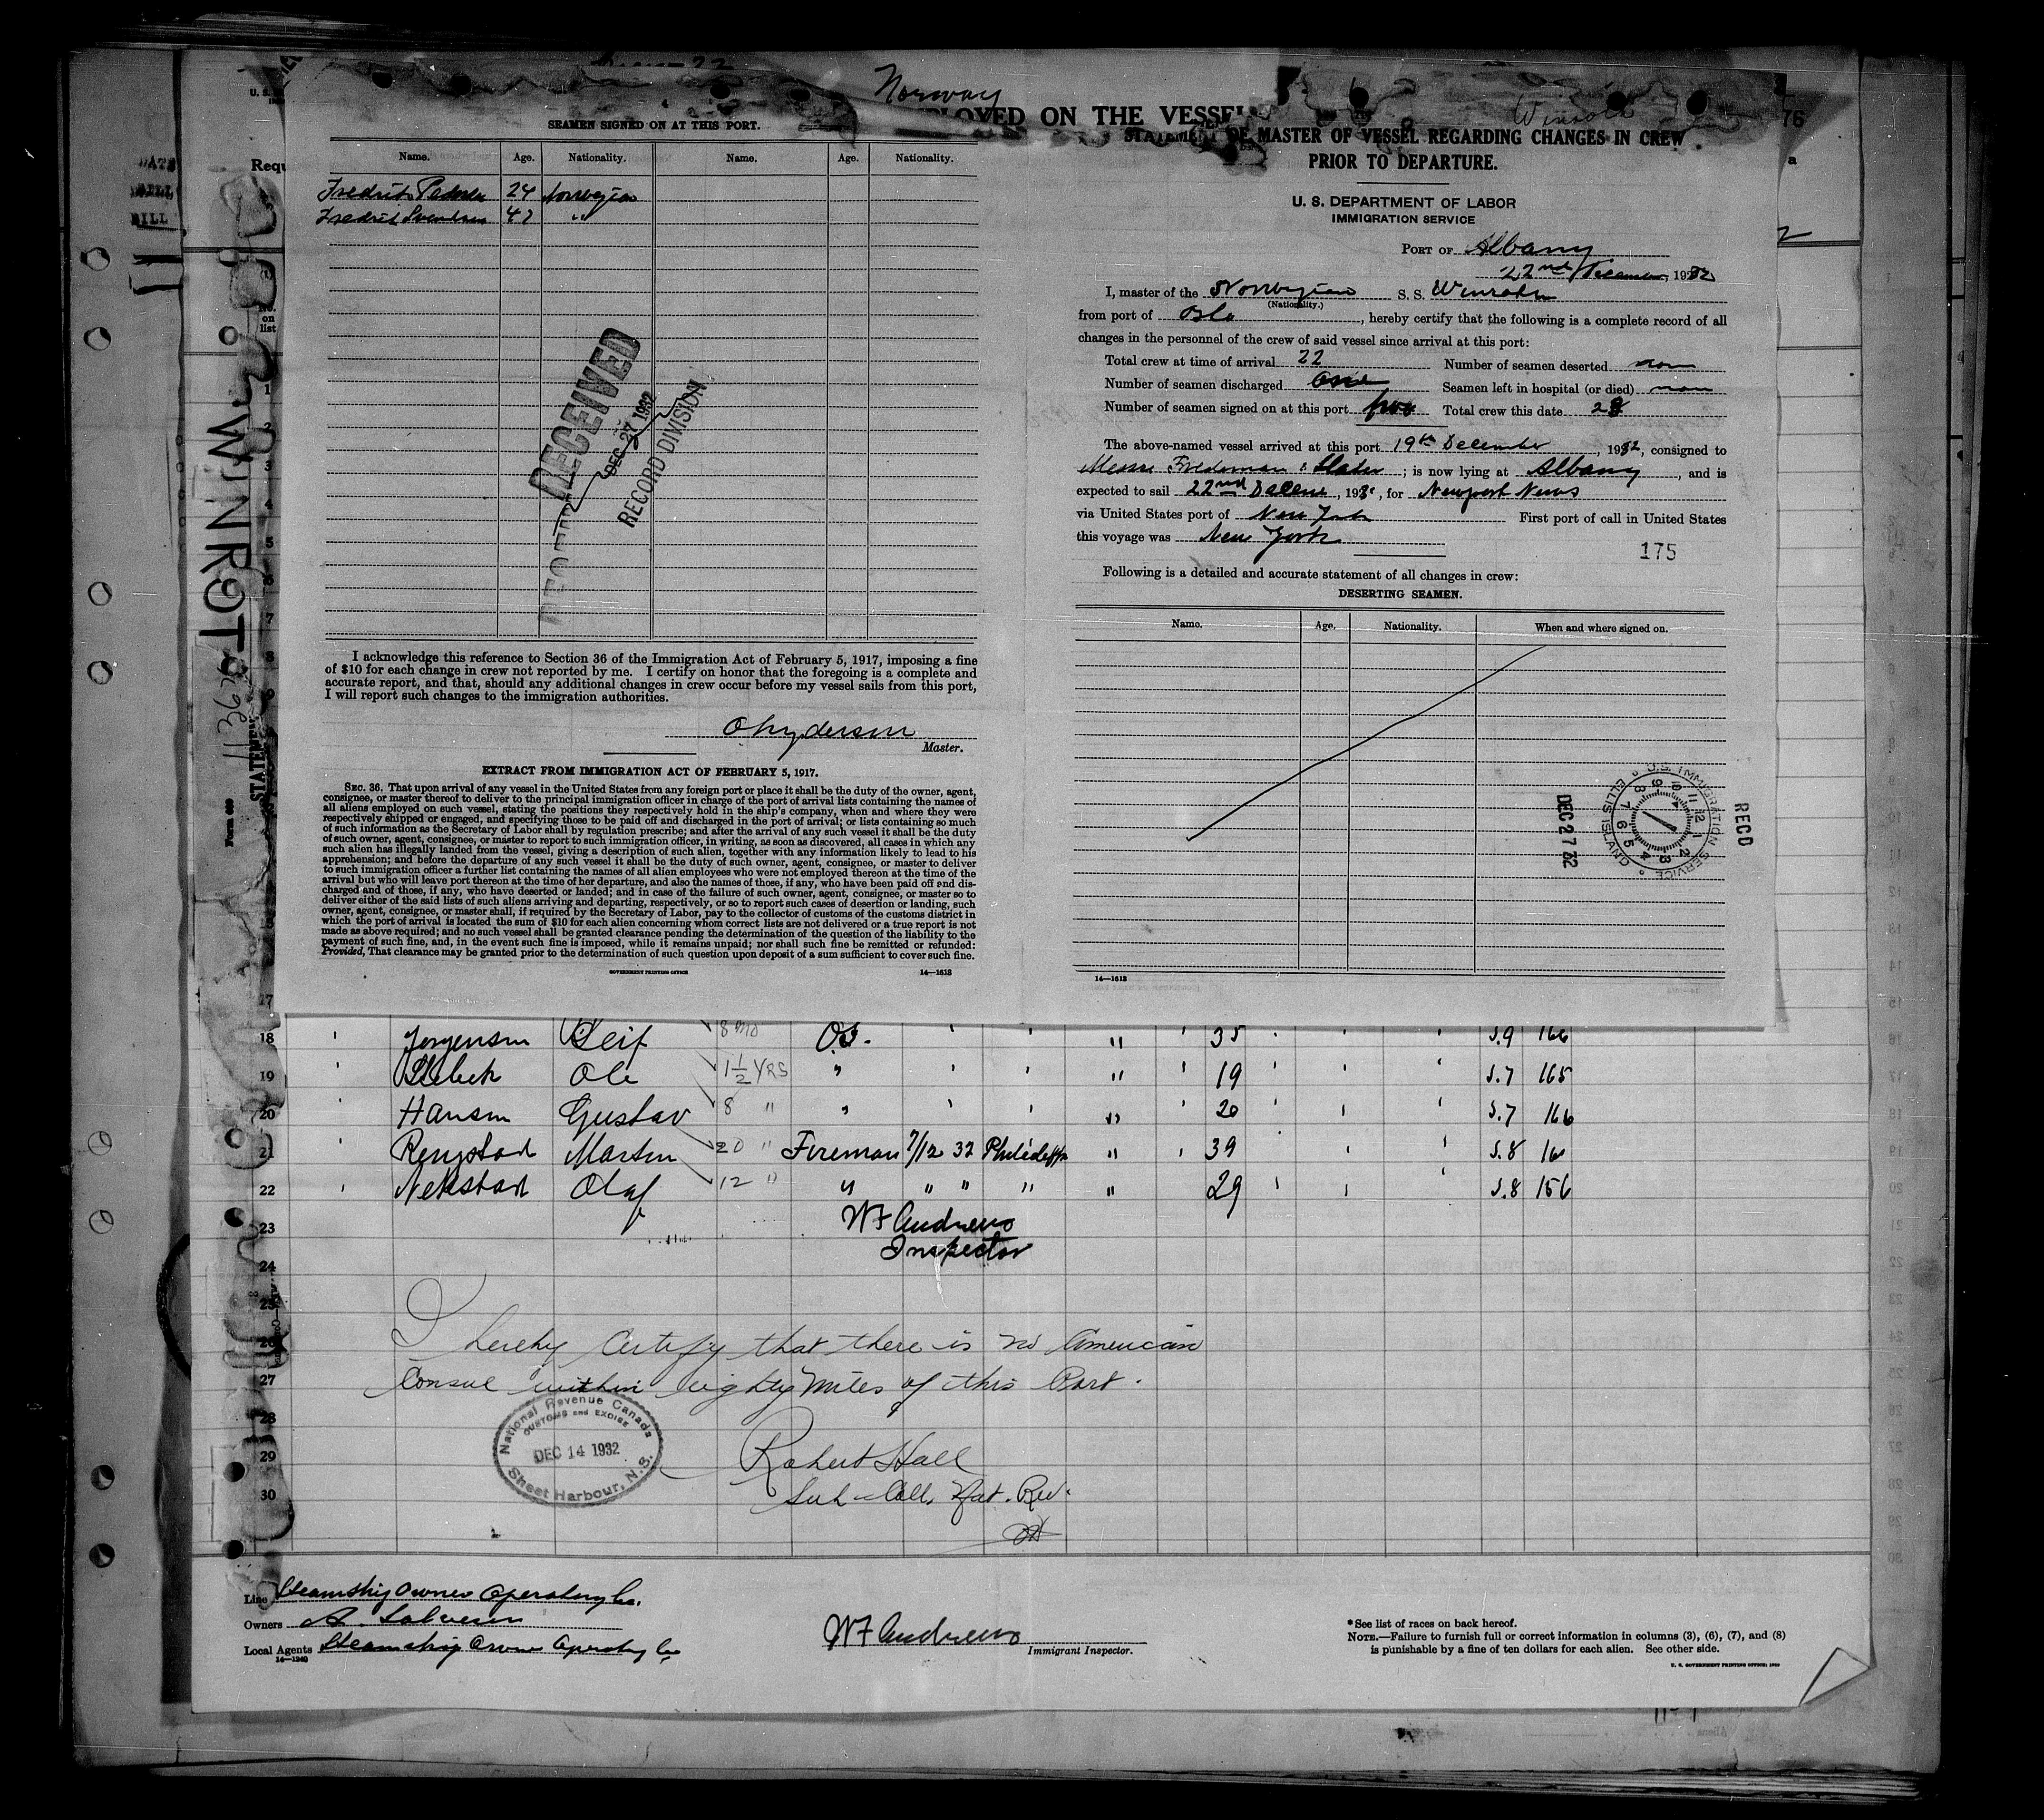 Norway
PLOYED ON THE VESSEL
SEAMEN SIGNED ON AT THIS PORT.
Name. Age. Nationality. Name. Age. Nationality.
Fredrik 24 Norwegian
Fredrik Svendsen 47 "
RECEIVED
DEC 27 1932
RECORD DIVISION
I acknowledge this reference to Section 36 of the Immigration Act of February 5, 1917, imposing a fine
of $10 for each change in crew not reported by me. I certify on honor that the foregoing is a complete and
accurate report, and that, should any additional changes in crew occur before my vessel sails from this port,
I will report such changes to the immigration authorities.
Master.
EXTRACT FROM IMMIGRATION ACT OF FEBRUARY 5, 1917.
SEC. 36. That upon arrival of any vessel in the United States from any foreign port or place it shall be the duty of the owner, agent,
consignee, or master thereof to deliver to the principal immigration officer in charge of the port of arrival lists containing the names of
all aliens employed on such vessel, stating the positions they respectively hold in the ship's company, when and where they were
respectively shipped or engaged, and specifying those to be paid off and discharged in the port of arrival; or lists containing so much
of such information as the Secretary of Labor shall by regulation prescribe; and after the arrival of any such vessel it shall be the duty
of such owner, agent, consignee, or master to report to such immigration officer, in writing, as soon as discovered, all cases in which any
such alien has illegally landed from the vessel, giving a description of such alien, together with any information likely to lead to his
apprehension; and before the departure of any such vessel it shall be the duty of such owner, agent, consignee, or master to deliver
to such immigration officer a further list containing the names of all alien employees who were not employed thereon at the time of the
arrival but who will leave port thereon at the time of her departure, and also the names of those, if any, who have been paid off and dis-
charged and of those, if any, who have deserted or landed; and in case of the failure of such owner, agent, consignee, or master so to
deliver either of the said lists of such aliens arriving and departing, respectively, or so to report such cases of desertion or landing, such
owner, agent, consignee, or master shall, if required by the Secretary of Labor, pay to the collector of customs of the customs district in
which the port of arrival is located the sum of $10 for each alien concerning whom correct lists are not delivered or a true report is not
made as above required; and no such vessel shall be granted clearance pending the determination of the question of the liability to the
payment of such fine, and, in the event such fine is imposed, while it remains unpaid; nor shall such fine be remitted or refunded:
Provided, That clearance may be granted prior to the determination of such question upon deposit of a sum sufficient to cover such fine.
GOVERNMENT PRINTING OFFICE 14—1613
STATEMENT OF MASTER OF VESSEL REGARDING CHANGES IN CREW
PRIOR TO DEPARTURE.
U. S. DEPARTMENT OF LABOR
IMMIGRATION SERVICE
PORT OF Albany
22nd December, 1932
I, master of the Norwegian S. S.
(Nationality.)
from port of Oslo, hereby certify that the following is a complete record of all
changes in the personnel of the crew of said vessel since arrival at this port:
Total crew at time of arrival 22 Number of seamen deserted non
Number of seamen discharged One Seamen left in hospital (or died) non
Number of seamen signed on at this port two Total crew this date 23
The above-named vessel arrived at this port 19th December, 1932, consigned to
Messrs ; is now lying at Albany, and is
expected to sail 22nd, 193 , for Newport News
via United States port of New York First port of call in United States
this voyage was New York
175
Following is a detailed and accurate statement of all changes in crew:
DESERTING SEAMEN.
Name. Age. Nationality. When and where signed on.
U.S. IMMIGRATION SERVICE
ELLIS ISLAND
DEC 27 32
RECD
14—1613
WINROTH
18 Jorgensen Leif 8 mo O.S. " 35 5.9 166
19 Ole 1½ YRS " " 19 5.7 165
20 Hansen Gustav 8 " " " 20 5.7 166
21 Martin 20 " Fireman 7/12 32 Philadelphia " 39 5.8
22 Olaf 12 " " " " " " 29 5.8 156
23 WF Andrews
24 Inspector
25
26 I hereby certify that there is no American
27 Consul within eighty miles of this Port.
28
29 Robert Hall
30 Sub-Coll. Nat. Rev.
National Revenue Canada
CUSTOMS and EXCISE
DEC 14 1932
Sheet Harbour, N.S.
Line Steamship Owners Operating Co.
Owners A. Salvesen
Local Agents Steamship Owners Operating Co
14—1240
WF Andrews
Immigrant Inspector.
* See list of races on back hereof.
NOTE.—Failure to furnish full or correct information in columns (3), (6), (7), and (8)
is punishable by a fine of ten dollars for each alien. See other side.
U. S. GOVERNMENT PRINTING OFFICE: 1930